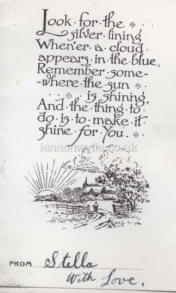 Look for the
silver lining
When'er a cloud
appears in the blue,
Remember some-
-where the sun
is shining,
And the thing to
do is to make it
shine for You.
lennonwylie.co.uk
FROM Stella
With Love.